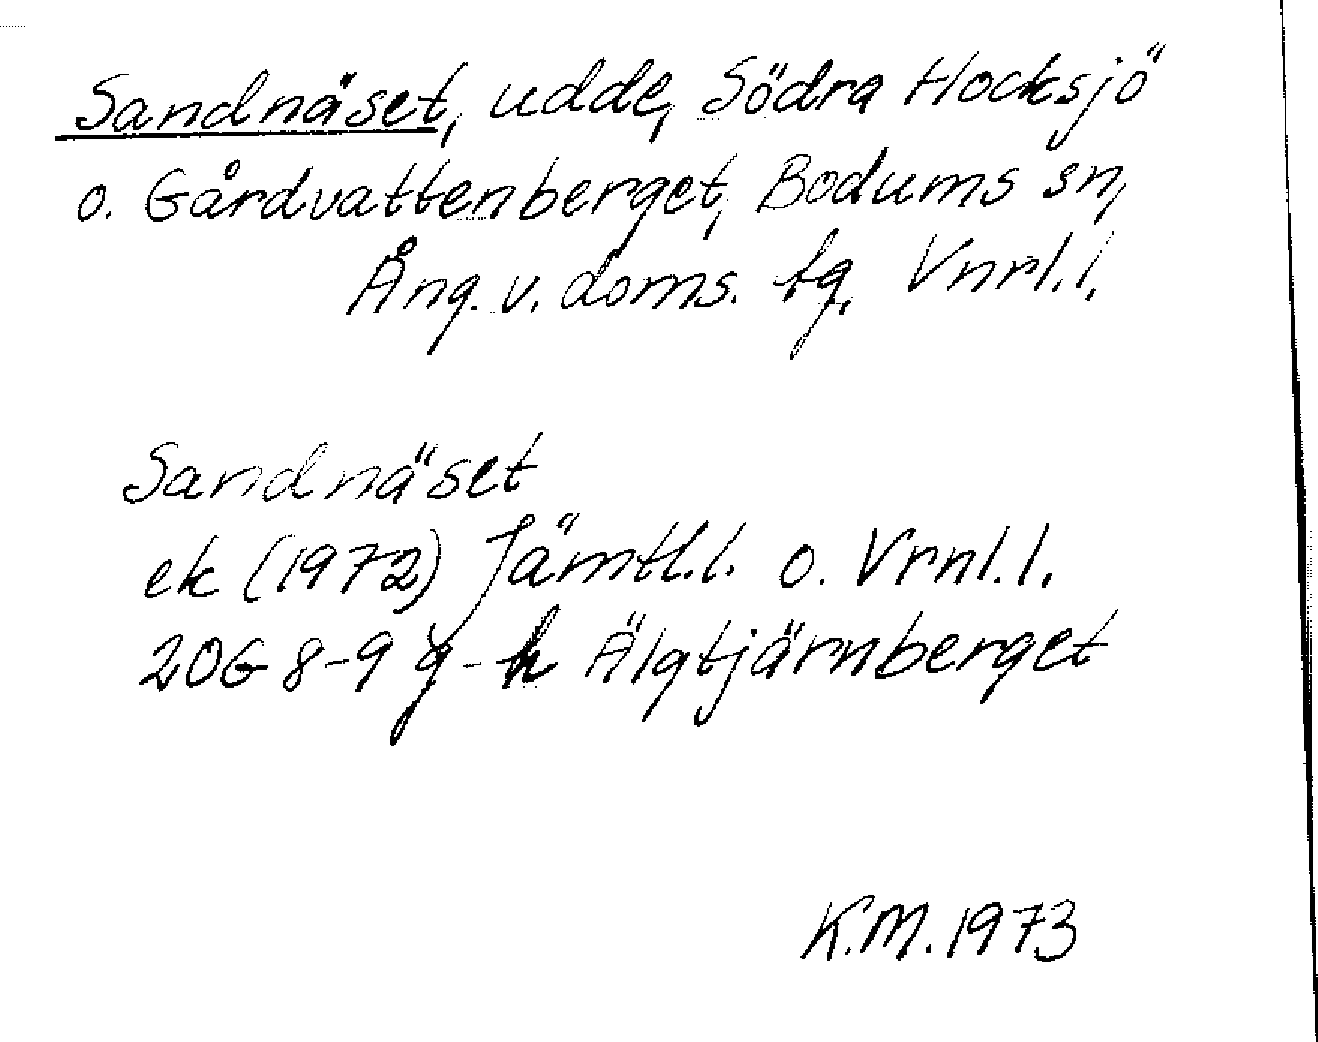 Sandnäset, udde, Södra Hocksjö
o. Gårdvattenberget, Bodums sn,
Ång. v. doms. fg, Vnrl.l.
Sandnäset
ek (1972) Jämtl.l. o. Vrnl.l.
20G 8-9 g-h Älgtjärnberget
K.M. 1973